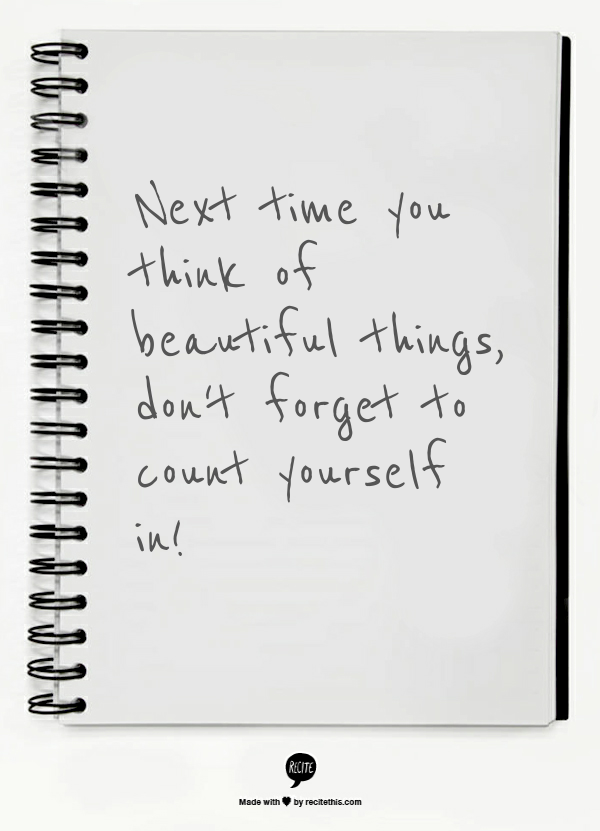 Next time you
think of
beautiful things,
don't forget to
count yourself
in!
RECITE
Made with ♥ by recitethis.com